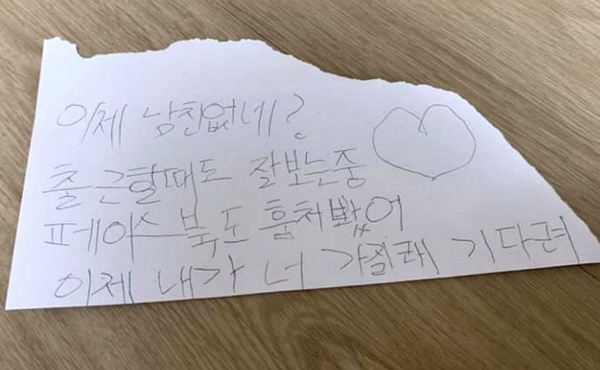 이제 남친없네?
출근할때도 잘보는중
페이스북도 훔쳐봤어
이제 내가 너 가질래 기다려